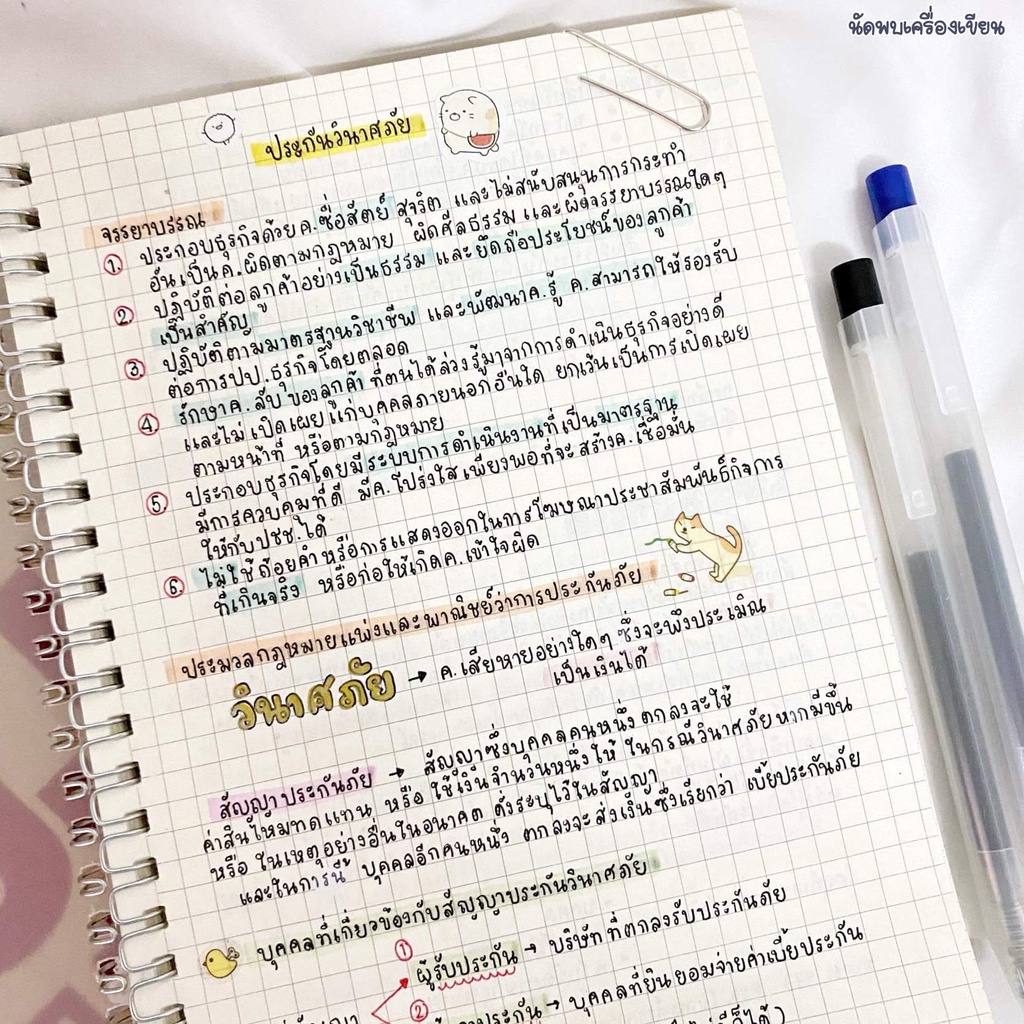 นัดพบเครื่องเขียน
ประกันวินาศภัย
จรรยาบรรณ
① ประกอบธุรกิจด้วยค.ซื่อสัตย์ สุจริต และไม่สนับสนุนการกระทำ
อันเป็นค.ผิดตามกฎหมาย ผิดศีลธรรม และผิดจรรยาบรรณใดๆ
② ปฏิบัติต่อลูกค้าอย่างเป็นธรรม และยึดถือประโยชน์ของลูกค้า
เป็นสำคัญ
③ ปฏิบัติตามมาตรฐานวิชาชีพ และพัฒนาค.รู้ ค.สามารถให้รองรับ
ต่อการปป.ธุรกิจโดยตลอด
④ รักษาค.ลับของลูกค้า ที่ตนได้ล่วงรู้มาจากการดำเนินธุรกิจอย่างดี
และไม่เปิดเผยแก่บุคคลภายนอกอื่นใด ยกเว้นเป็นการเปิดเผย
ตามหน้าที่ หรือตามกฎหมาย
⑤ ประกอบธุรกิจโดยมีระบบการดำเนินงานที่เป็นมาตรฐาน
มีการควบคุมที่ดี มีค.โปร่งใสเพียงพอที่จะสร้างค.เชื่อมั่น
ให้กับปชช.ได้
⑥ ไม่ใช้ถ้อยคำหรือการแสดงออกในการโฆษณาประชาสัมพันธ์กิจการ
ที่เกินจริง หรือก่อให้เกิดค.เข้าใจผิด
ประมวลกฎหมายแพ่งและพาณิชย์ว่าการประกันภัย
วินาศภัย → ค.เสียหายอย่างใดๆ ซึ่งจะพึงประเมิณ
เป็นเงินได้
สัญญาประกันภัย → สัญญาซึ่งบุคคลคนหนึ่งตกลงจะใช้
ค่าสินไหมทดแทน หรือ ใช้เงินจำนวนหนึ่งให้ ในกรณีวินาศภัยหากมีขึ้น
หรือ ในเหตุอย่างอื่นในอนาคต ดังระบุไว้ในสัญญา
และในการนี้ บุคคลอีกคนหนึ่ง ตกลงจะส่งเงินซึ่งเรียกว่า เบี้ยประกันภัย
บุคคลที่เกี่ยวข้องกับสัญญาประกันวินาศภัย
① ผู้รับประกัน → บริษัทที่ตกลงรับประกันภัย
② → บุคคลที่ยินยอมจ่ายค่าเบี้ยประกัน